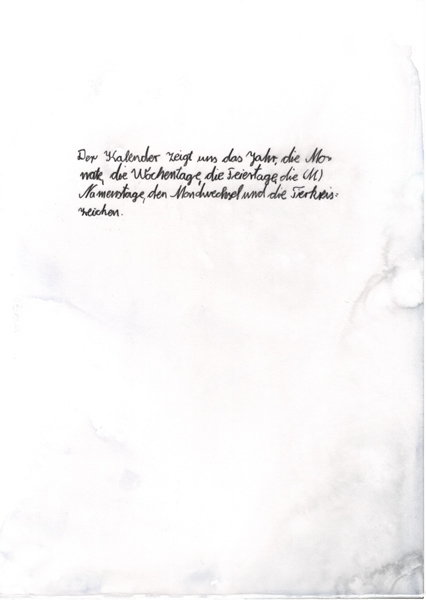 Der Kalender zeigt uns das Jahr, die Mo-
nate, die Wochentage, die Feiertage, die (N)
Namenstage, den Mondwechsel und die Tierkreis=
zeichen.